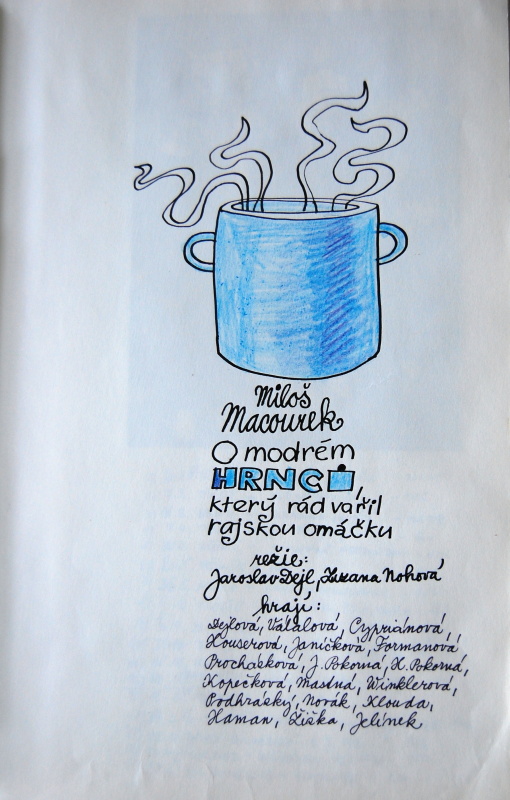 Miloš
Macourek
O modrém
HRNCI,
který rád vařil
rajskou omáčku
režie:
Jaroslav Dejl, Zuzana Nohová
hrají:
Dejlová, Válalová, Cypriánová,
Houserová, Janíčková, Formanová,
Procházková, J. Pokorná, H. Pokorná,
Kopečková, Mastná, Winklerová,
Podhraský, Novák, Klouda,
Haman, Žiška, Jelínek